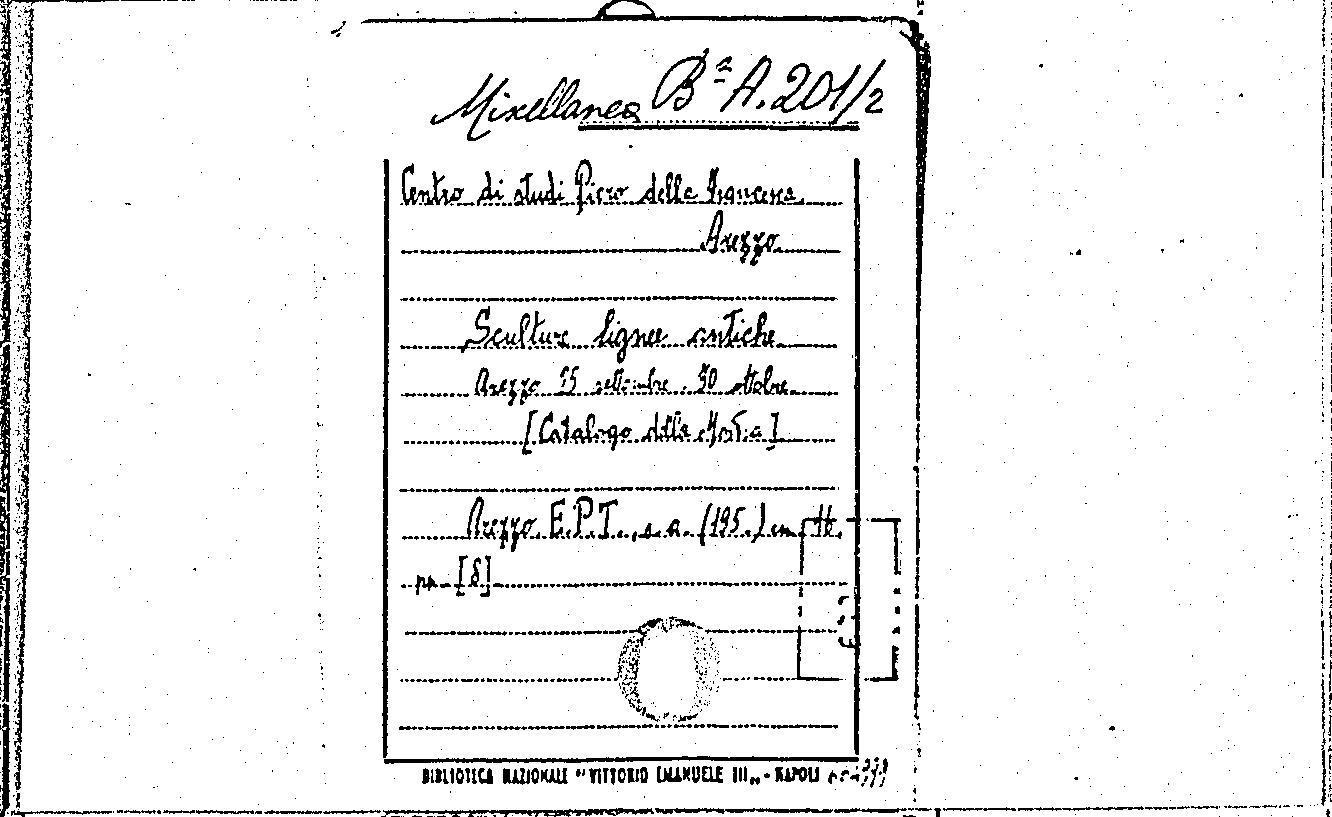 Miscellanea Bª A. 201/2
Centro di studi Piero della Francesca
Arezzo
Sculture lignee antiche
Arezzo 15 settembre - 30 ottobre
[Catalogo della Mostra]
Arezzo E.P.T., s.a. (195.) in
pp. [8]
BIBLIOTECA NAZIONALE "VITTORIO EMANUELE III„ - NAPOLI